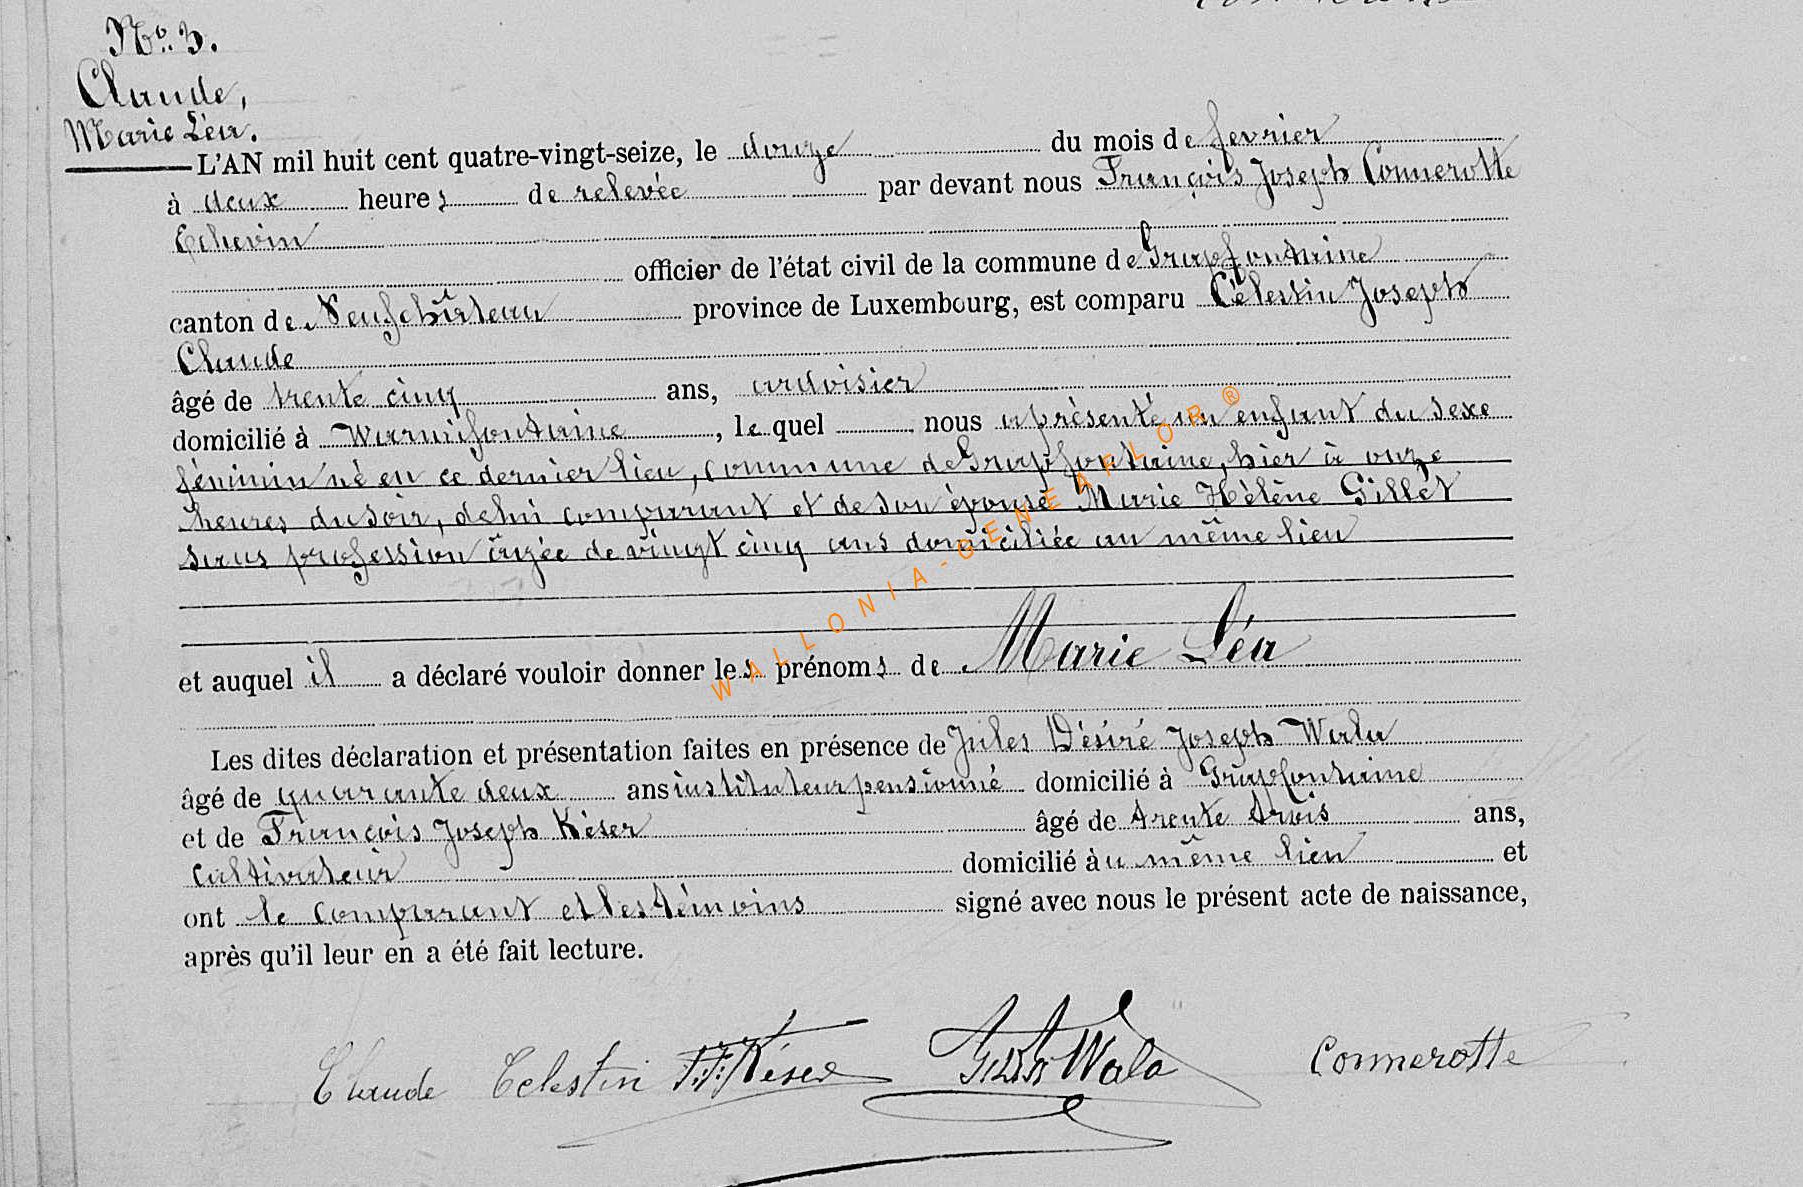 No. 3.
Claude,
Marie Léa.
L'AN mil huit cent quatre-vingt-seize, le douze du mois de fevrier
à deux heures de relevée par devant nous François Joseph Connerotte
Echevin
officier de l'état civil de la commune de Grapfontaine
canton de Neufchâteau province de Luxembourg, est comparu Célestin Joseph
Claude
âgé de trente cinq ans, ardoisier
domicilié à Warmifontaine, le quel nous a présenté un enfant du sexe
féminin né en ce dernier lieu, commune de Grapfontaine, hier à onze
heures du soir, de lui comparant et de son épouse Marie Hélène Gillet
sans profession âgée de vingt cinq ans domiciliée au même lieu
et auquel il a déclaré vouloir donner les prénoms de Marie Léa
Les dites déclaration et présentation faites en présence de Jules Désiré Joseph Wala
âgé de quarante deux ans instituteur pensionné domicilié à Grapfontaine
et de François Joseph Késer âgé de trente trois ans,
cultivateur domicilié au même lieu et
ont le comparant et les témoins signé avec nous le présent acte de naissance,
après qu'il leur en a été fait lecture.
Claude Celestin F.J. Késer Wala Connerotte
WALLONIA-GENEAFLOR®